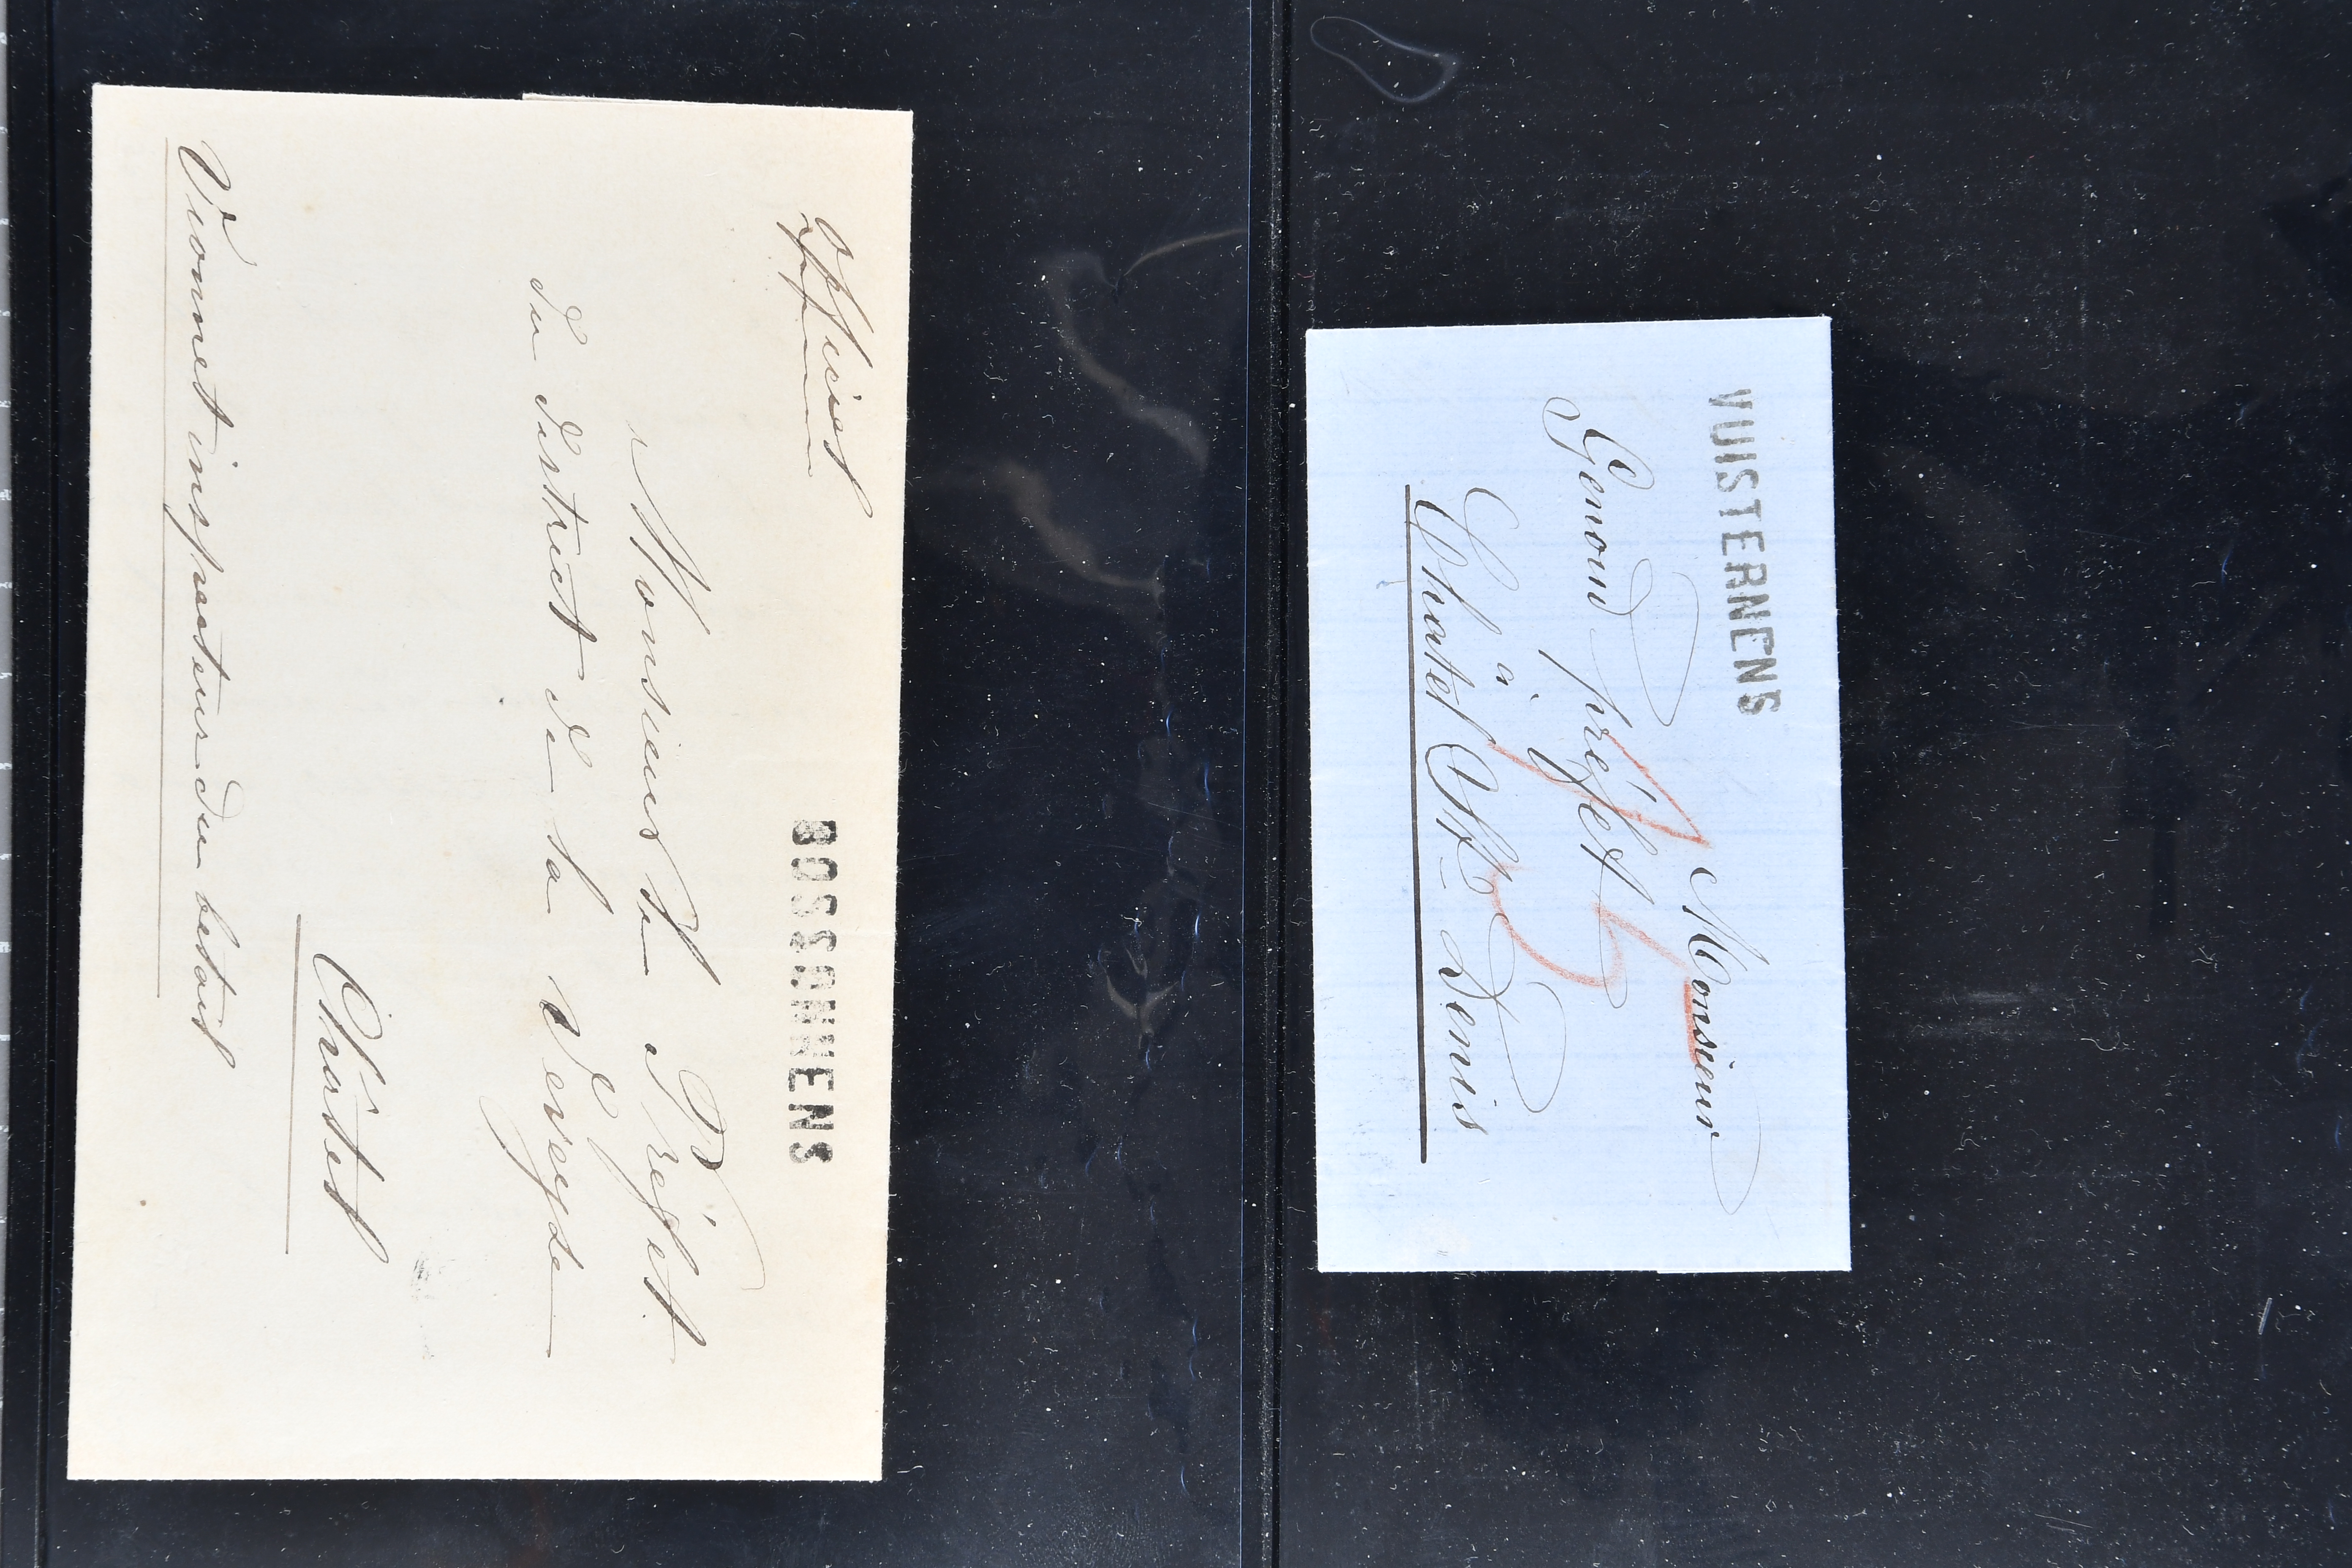 VUISTERNENS
Monsieur
Genoud préfet
à
Châtel St- Denis
Officiel
BOSSONNENS
Monsieur le Préfet
du district de la Veveyse
Châtel
Vionnet inspecteur du bétail